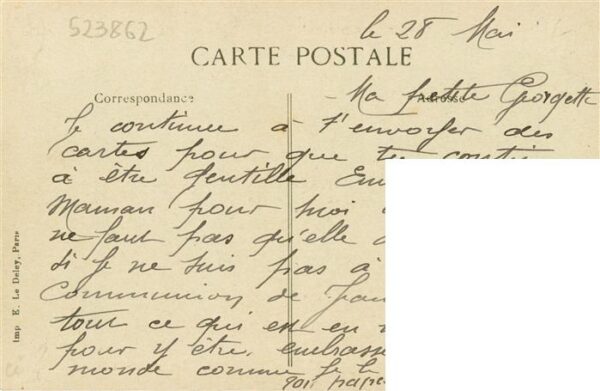 523862
le 28 Mai
CARTE POSTALE
Correspondance
Adresse
Ma petite Georgette
Je continue à t'envoyer des
cartes pour que tu conti
à être gentille Em
Maman pour moi
ne faut pas qu'elle
si je ne suis pas à
Communion de Jean
tout ce qui est en
pour y être. embrasse
monde comme je
ton papa
Imp E. Le Deley, Paris